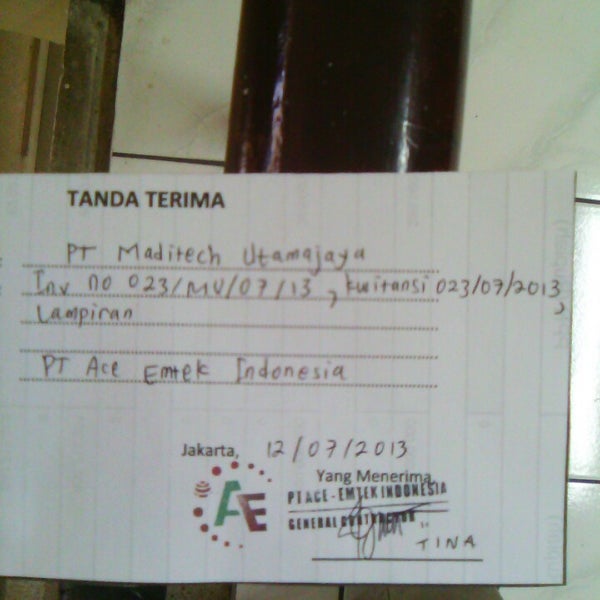 TANDA TERIMA
PT Maditech Utamajaya
Inv no 023/MU/07/13, kwitansi 023/07/2013,
Lampiran
PT Ace Emtek Indonesia
Jakarta, 12/07/2013
Yang Menerima
PT ACE - EMTEK INDONESIA
AE
GENERAL CONTRACTOR
TINA